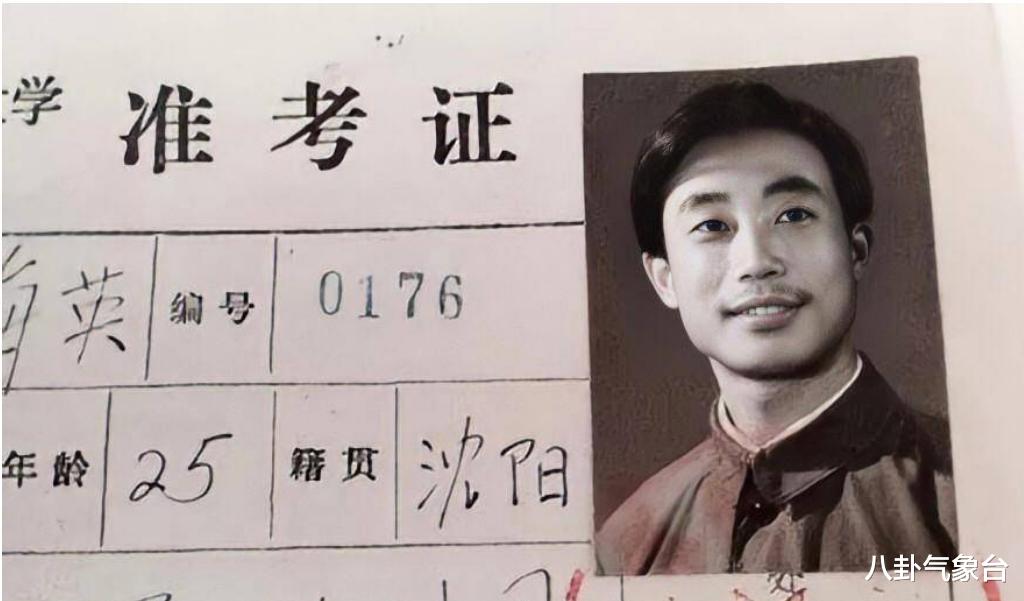 学 准考证
英 编号 0176
年龄 25 籍贯 沈阳
八卦气象台